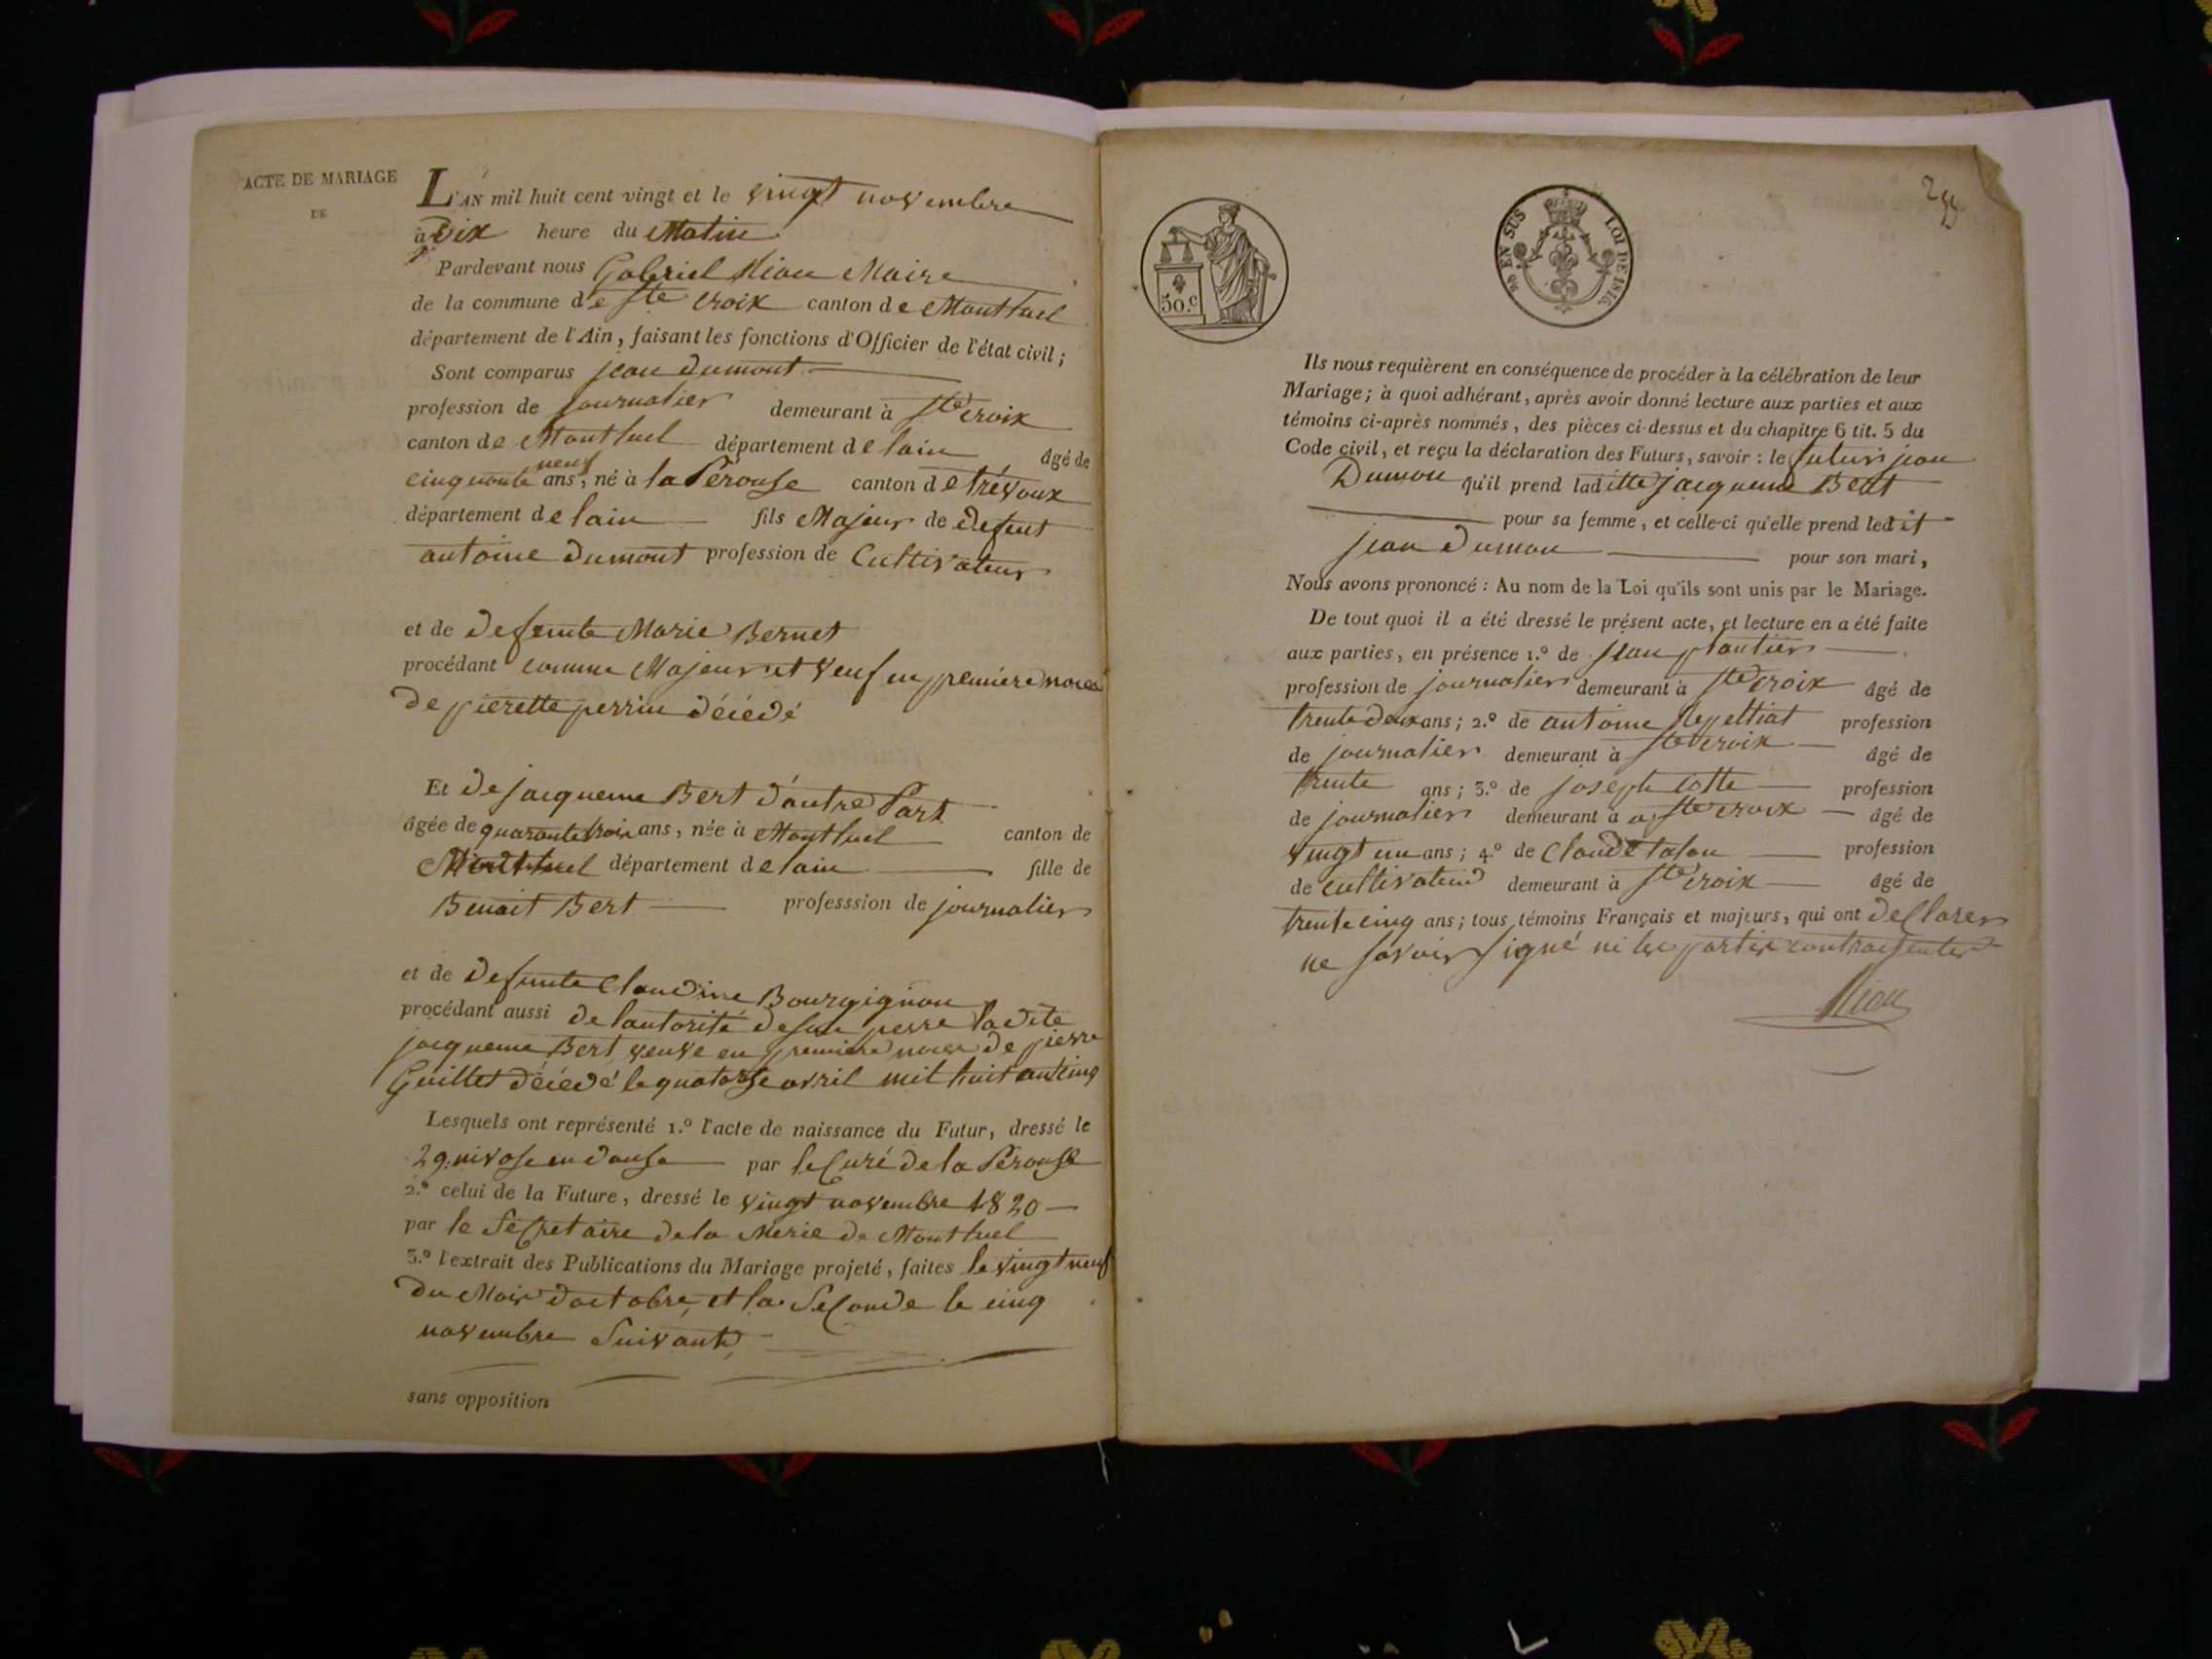 ACTE DE MARIAGE
DE
L'AN mil huit cent vingt et le vingt novembre
à Dix heure du Matin
Pardevant nous Gabriel Maire
de la commune de Ste croix canton de Montluel
département de l'Ain, faisant les fonctions d'Officier de l'état civil;
Sont comparus jean dumont
profession de journalier demeurant à Ste croix
canton de Montluel département de lain âgé de
cinquante neuf ans, né à la Pérouse canton de trévoux
département de lain fils Majeur de defeut
antoine dumont profession de Cultivateur
et de defeunte Marie Bernet
procédant comme Majeur et veuf en premiere noces
De pierette perrin décédé
Et De jacqueme Bert d'autre Part
âgée de quarante trois ans, née à Montluel canton de
Montluel département de lain fille de
Benait Bert professsion de journalier
et de Defunte Claudine Bourgignon
procédant aussi de lautorité de son perre ladite
jacqueme Bert veuve en premiere noces de pierre
Guillet décédé le quatorse avril mil huit cent cinq
Lesquels ont représenté 1.º l'acte de naissance du Futur, dressé le
29. nivose en douse par le Curé de la Pérouse
2.º celui de la Future, dressé le vingt novembre 1820
par le Secretaire de la Merie de Montluel
3.º l'extrait des Publications du Mariage projeté, faites le vingt neuf
du Mois d'octobre, et la Seconde le cinq
novembre Suivant
sans opposition
50.c
EN SUS LOI DE 1816.
Ils nous requièrent en conséquence de procéder à la célébration de leur
Mariage; à quoi adhérant, après avoir donné lecture aux parties et aux
témoins ci-après nommés, des pièces ci-dessus et du chapitre 6 tit. 5 du
Code civil, et reçu la déclaration des Futurs, savoir: le futur jean
Dumon qu'il prend laditte jacqueme Bert
pour sa femme, et celle-ci qu'elle prend ledit
jean dumon pour son mari,
Nous avons prononcé: Au nom de la Loi qu'ils sont unis par le Mariage.
De tout quoi il a été dressé le présent acte, et lecture en a été faite
aux parties, en présence 1.º de jean plantier
profession de journalier demeurant à Ste croix âgé de
trente deux ans; 2.º de antoine profession
de journalier demeurant à Ste croix âgé de
trente ans; 3.º de joseph Cotte profession
de journalier demeurant à a Ste croix âgé de
vingt un ans; 4.º de Claude profession
de cultivateur demeurant à Ste croix âgé de
trente cinq ans; tous témoins Français et majeurs, qui ont declarer
ne savoir signé ni les parties contractentes